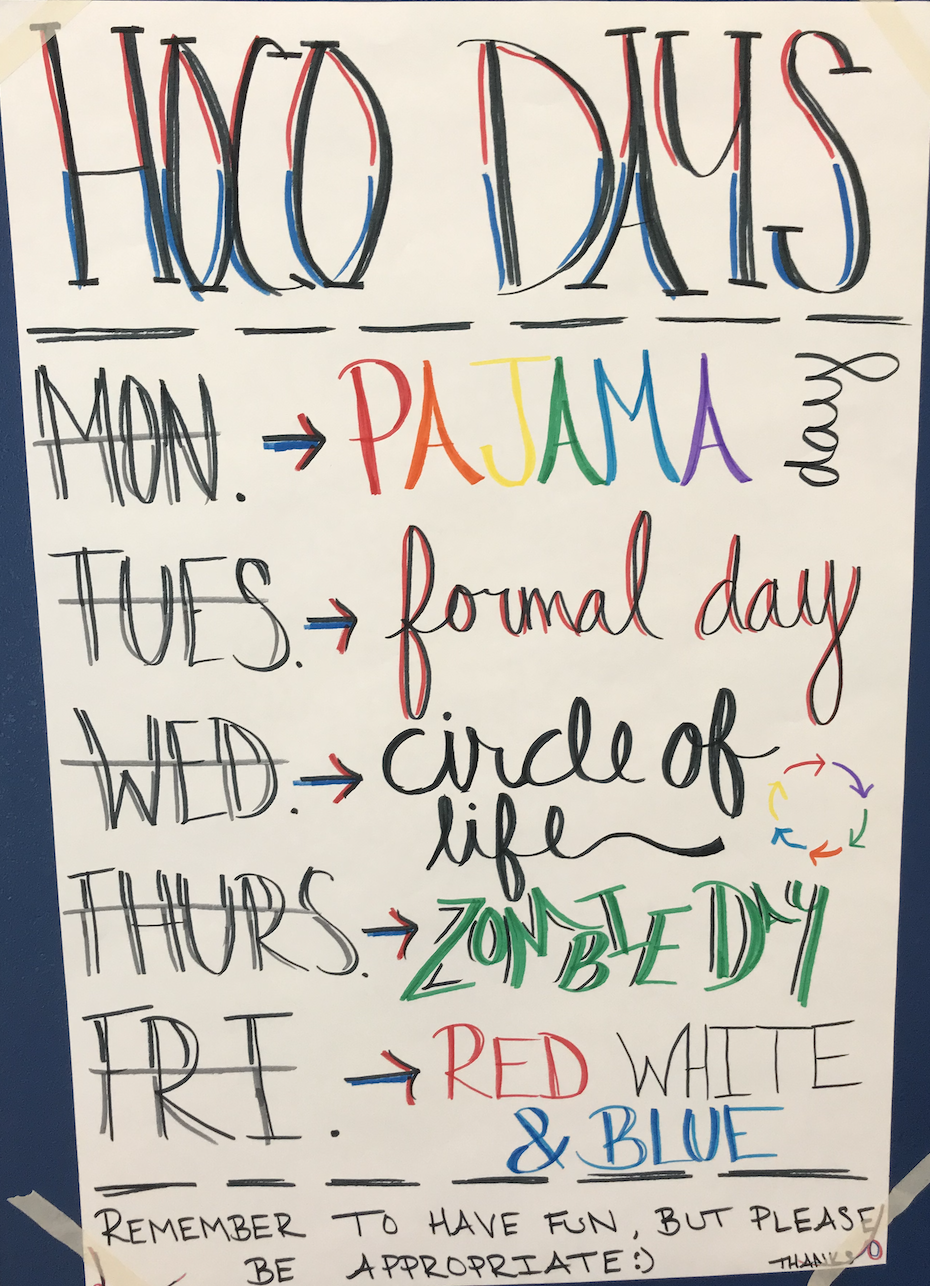 HOCO DAYS
MON. → PAJAMA day
TUES. → formal day
WED. → circle of
life
THURS. → ZOMBIE DAY
FRI. → RED WHITE
& BLUE
REMEMBER TO HAVE FUN, BUT PLEASE
BE APPROPRIATE:) THANKS